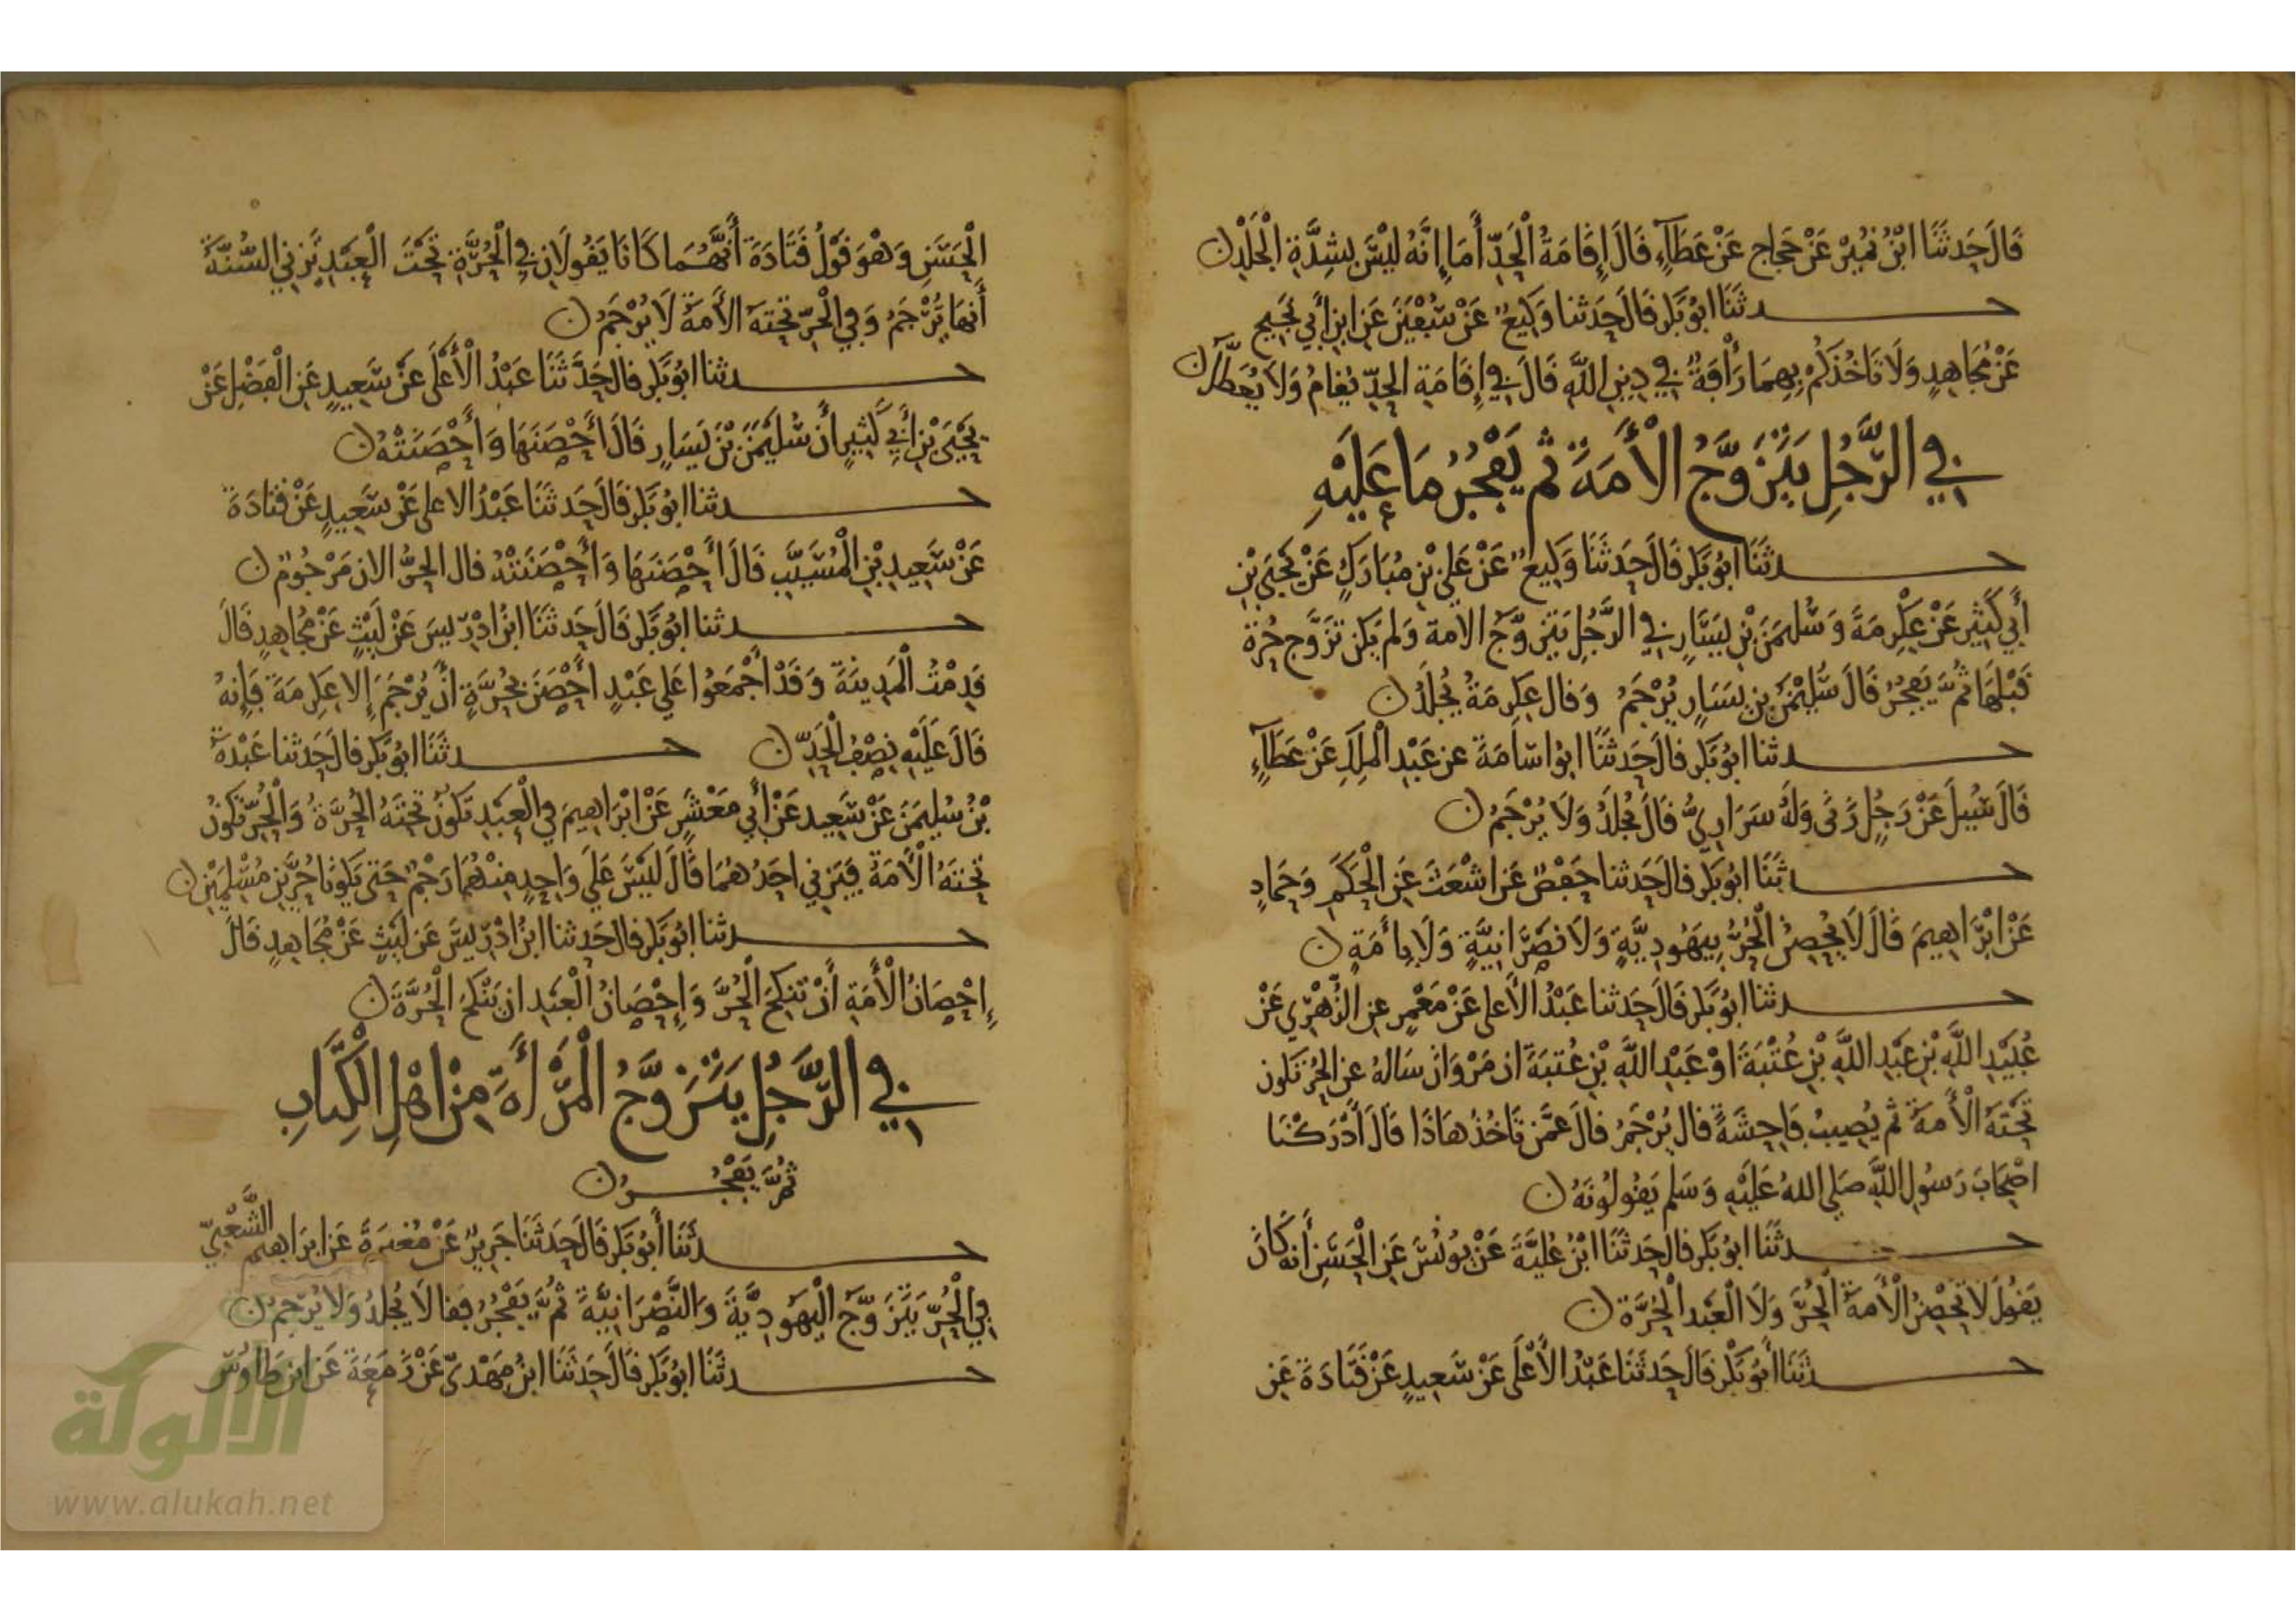 قَالَ حَدثَنَا ابْنُ نُمَيْرٍ عَنْ حَجاج عَنْ عَطَآءٍ قَالَ إِقَامَةُ الْحَدِّ أَمَا إِنَّهُ لَيْسَ بِشِدَّةِ الْجَلْدِ ن
حــــدثَنَا ابُو بَكر قَالَ حَدَثنا وَكِيعٌ عَنْ سُفْيَنَ عَنِ ابنِ أَبي نَجِيحٍ
عَنْ مُجَاهِدٍ وَلَا تَاخُذكُمْ بِهِمَا رَأْفَةٌ فِي دِينِ اللَّهِ قَالَ فِي إِقَامَةِ الحدِّ يُقَامُ وَلَا يُعَطَّلُ ن
فِي الرَّجُلِ يَتَزَوَّجُ الْأَمَةَ ثم يَفْجُرُ مَا عَلَيْهِ
حــــدثَنَا ابُو بَكر قَالَ حَدَثَنَا وَكِيعٌ عَنْ عَلِيّ بْنِ مُبَارَكٍ عَنْ يَحْيَى بْنِ
أَبِي كَثِيرٍ عَنْ عِكْرِمَةَ وَسُلَيمَنَ بْنِ يَسَارٍ فِي الرَّجُلِ يَتَزَوَّجُ الامة وَلم يَكن تَزَوَّج حُرة
قَبْلَهَا ثُمَّ يَفجُرُ قَالَ سُلَيْمَنُ بن يَسَارٍ يُرْجَمُ وَقال عِكرِمَةُ يُجْلَدُ ن
حــــدثنا ابُو بَكر قالَ حَدثَنَا ابُو اسَامَةَ عن عَبْدِ الْمَلِكِ عَنْ عَطَآءٍ
قَالَ سُئِلَ عَنْ رَجُلٍ زَنَى وَلَهُ سَرَارِيُّ قَالَ يُجْلَدُ وَلَا يُرْجَمُ ن
حــــدثَنَا ابُو بَكر قالَ حَدثنا حَفْصٌ عَن اشْعَثَ عَنِ الْحَكَمِ وَحَمادٍ
عَنْ ابْرَاهِيمَ قَالَ لَا يُحْصِنُ الْحُرُّ بِيَهُودِيَّةٍ وَلَا نَصْرَانِيَّةٍ وَلَا بِأَمَةٍ ن
حــــدثنا ابُو بَكر قَالَ حَدثنا عَبْدُ الْأَعلى عَنْ مَعْمَرٍ عن الزُّهْرِي عَنْ
عُبَيْدِ اللَّهِ بْنِ عَبدِ اللَّهِ بْنِ عُتْبَةَ اوْ عَبْدِ اللَّهِ بْنِ عُتبَةَ ان مَرْوَانَ سَالهُ عنِ الحُر تكون
تَحْتَهُ الْأَمَةُ ثم يُصِيبُ فَاحِشَةً قال يُرْجَمُ قالَ عَمَّن تَاخُذُ هَاذَا قَالَ أَدْرَكْنَا
اصْحَابَ رَسُولِ اللَّهِ صَلى اللهُ عَلَيْهِ وَسَلم يَقُولُونَهُ ن
حــــدثَنَا ابُو بَكر قالَ حَدثَنَا ابْنُ عُلَيَّةَ عَنْ يُونُسَ عَنِ الْحَسَنِ أَنه كَانَ
يَقُولُ لَا تُحْصِنُ الْأَمَةُ الْحُرَّ وَلَا الْعَبْد الْحُرَّةَ ن
حــــدثَنَا أَبُو بَكْر قَالَ حَدثَنَا عَبْدُ الْأَعْلَى عَنْ سَعِيدٍ عَنْ قَتَادَةَ عَنِ
الْحَسَنِ وَهْوَ قَوْلُ قَتَادَةَ أَنَّهُمَا كَانَا يَقُولَانِ فِي الْحُرَّةِ تَحْتَ الْعَبْدِ تَزنِي السُّنَّةُ
أَنهَا تُرْجَمُ وَفِي الْحُرِّ تحتَهُ الْأَمَةُ لَا يُرْجَمُ ن
حــــدثنا ابُو بَكر قال حَدَّثَنَا عَبْدُ الْأَعْلَى عَنْ سَعِيدٍ عَنِ الْفَضْلِ عَنْ
يَحْيَى بْنِ أَبِي كَثِيرٍ أَن سُلَيْمَنَ بْنَ يَسَارٍ قَالَ أَحْصَنَهَا وَأَحْصَنَتْهُ ن
حــــدثنا ابُو بَكر قَالَ حَدثَنَا عَبْدُ الاعلى عَنْ سَعِيدٍ عَنْ قتادَةَ
عَنْ سَعِيدِ بْنِ الْمُسَيَّبِ قَالَ أَحْصَنَهَا وَأَحْصَنَتْهُ قال الحرُّ الان مَرْجُومٌ ن
حــــدثنا ابُو بَكر قَالَ حَدثنَا ابْنُ ادْرِيسَ عَنْ لَيْثٍ عَنْ مُجَاهِدٍ قَالَ
قَدِمْتُ الْمَدِينَةَ وَقَدْ أَجْمَعُوا عَلي عَبْدٍ احْصَنَ بِحُرَّةٍ انْ يُرْجَمَ إلا عِكْرِمَةَ فَإِنهُ
قَالَ عَلَيْهِ نِصْفُ الْحَدِّ ن حــــدثَنَا ابُو بَكر قالَ حَدثنا عَبْدَةُ
بْنُ سُلَيمَنَ عَنْ سَعِيد عَنْ أَبِي مَعْشَرٍ عَنْ ابْرَاهِيمَ فِي الْعَبْدِ تَكُونُ تَحْتَهُ الْحُرَّةُ وَالْحُرِّ تَكُونُ
تَحْتَهُ الْأَمَةُ فَيَزنِي احَدُهُمَا قَالَ لَيْسَ عَلَى وَاحِدٍ مِنْهُمَا رَجْمٌ حَتى يَكُونَا حُرَّيْنِ مُسْلِمَيْنِ ن
حــــدثنا ابُو بَكر قالَ حَدثنا ابْنُ ادْرِيسَ عَنْ لَيْثٍ عَنْ مُجَاهِدٍ قَالَ
إِحْصَانُ الْأَمَةِ أَنْ تَنكِحَ الْحُرَّ وَإِحْصَانُ الْعَبْدِ ان يَنْكِحَ الْحُرَّةَ ن
فِي الرَّجُلِ يَتَزَوَّجُ الْمَرْأَةَ مِنْ اهْلِ الْكِتَابِ
ثُمَّ يَفْجُــرُ ن
حــــدثَنَا أَبُو بَكر قَالَ حَدثَنَا جَرِيرٌ عَنْ مُغِيرَةَ عَن ابرَاهِيم الشَّعْبِيّ
فِي الْحُرِّ يَتَزَوَّج الْيَهُودِيَّةَ وَالنَّصْرَانِيَّةَ ثُمَّ يَفْجُرُ فقالَا يُجْلَدُ وَلَا يُرْجمُ ن
حــــدثَنَا ابُو بَكر قَالَ حَدَثَنَا ابْنُ مَهْدِيّ عَنْ زَمَعَةَ عَن ابن طَاوُسٍ
الألوكة
www.alukah.net